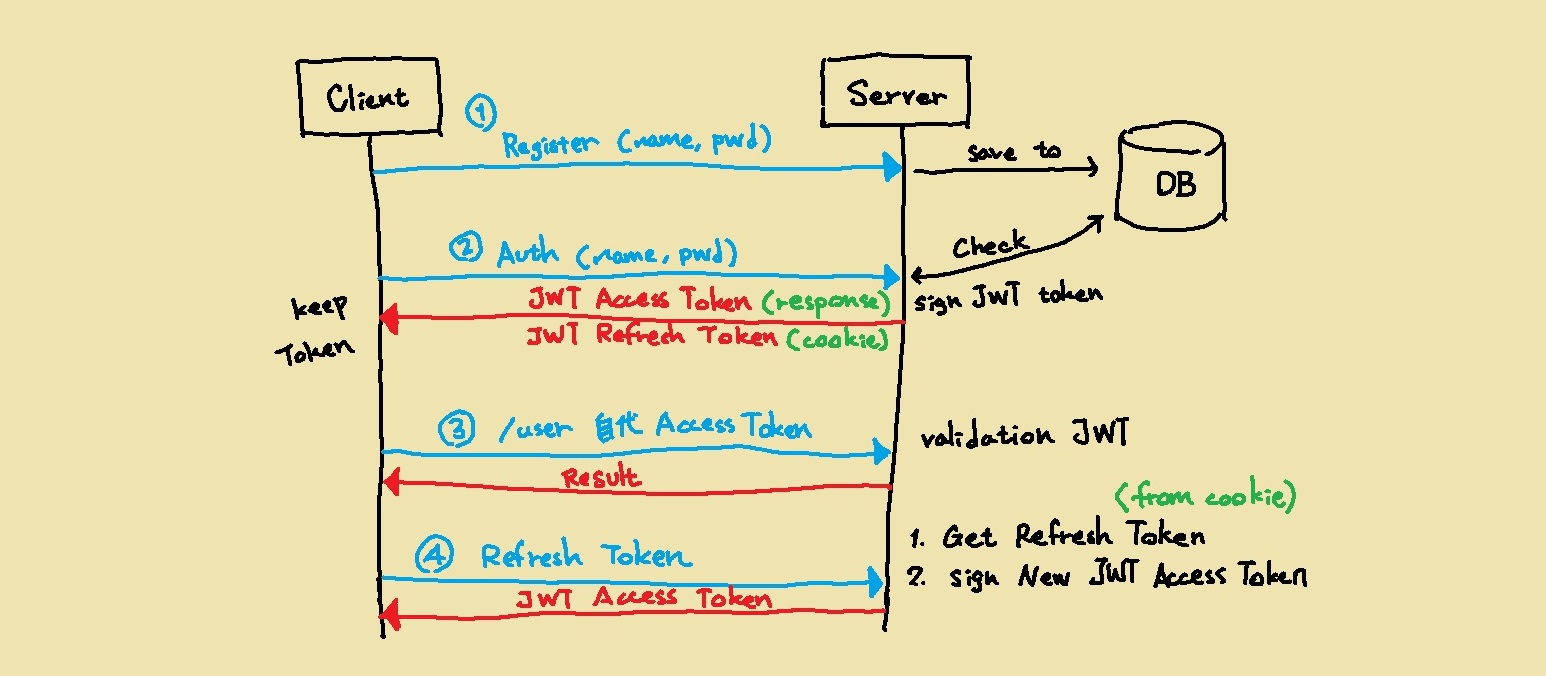 Client
Server
①
Register (name, pwd)
save to
DB
② Auth (name, pwd)
Check
keep
Token
JWT Access Token (response)
sign JWT token
JWT Refresh Token (cookie)
③ /user 自代 Access Token
validation JWT
Result
(from cookie)
④ Refresh Token
1. Get Refresh Token
2. sign New JWT Access Token
JWT Access Token